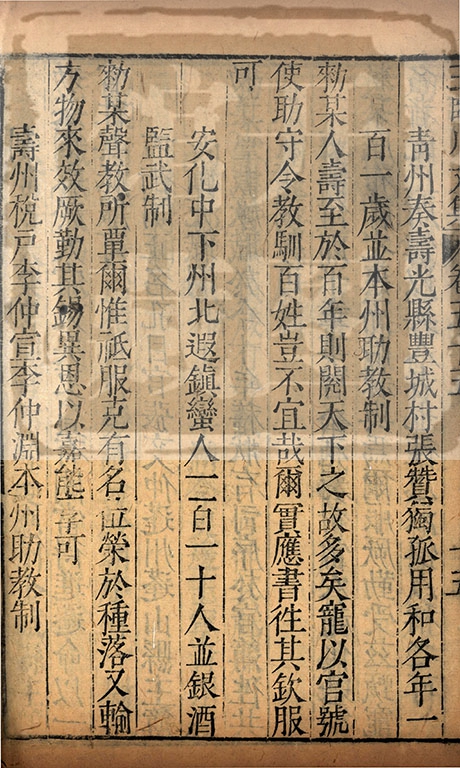 青州奏壽光縣豐城村張贊獨孤用和各年一
百一歲並本州助教制
勑某人壽至於百年則閱天下之故多矣寵以官號
使助守令教馴百姓豈不宜哉爾實應書徃其欽服
可
安化中下州北遐鎮蠻人一百一十人並銀酒
監武制
勑某聲教所覃爾惟祗服克有名位榮於種落又輸
方物來效厥勤其錫異恩以嘉能享可
壽州稅戶李仲宣李仲淵本州助教制